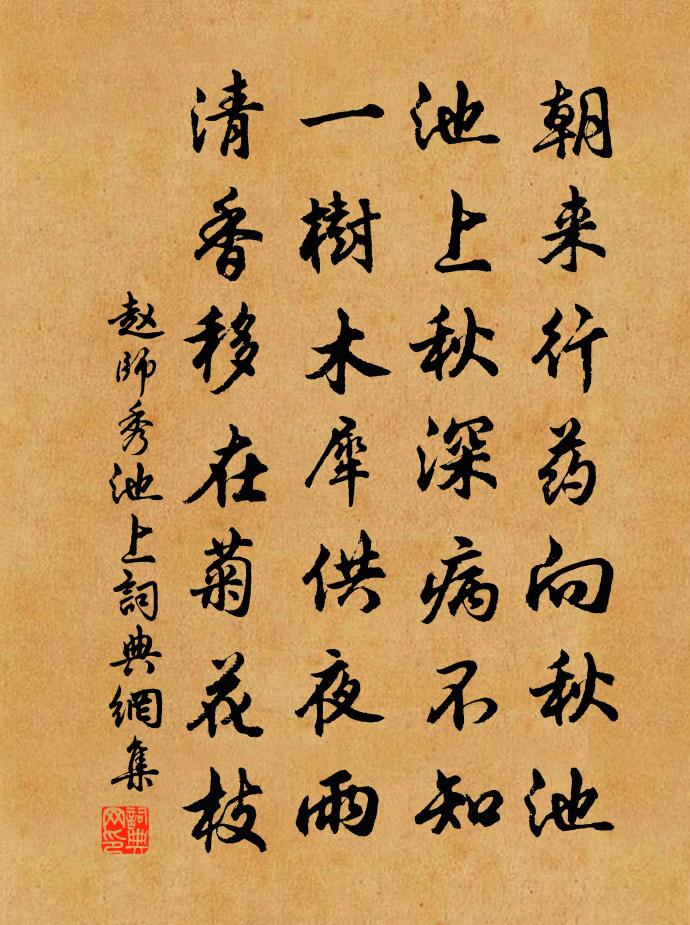 朝来行药向秋池
池上秋深病不知
一樹木犀供夜雨
清香移在菊花枝
赵師秀池上詞典網集
詞典网印